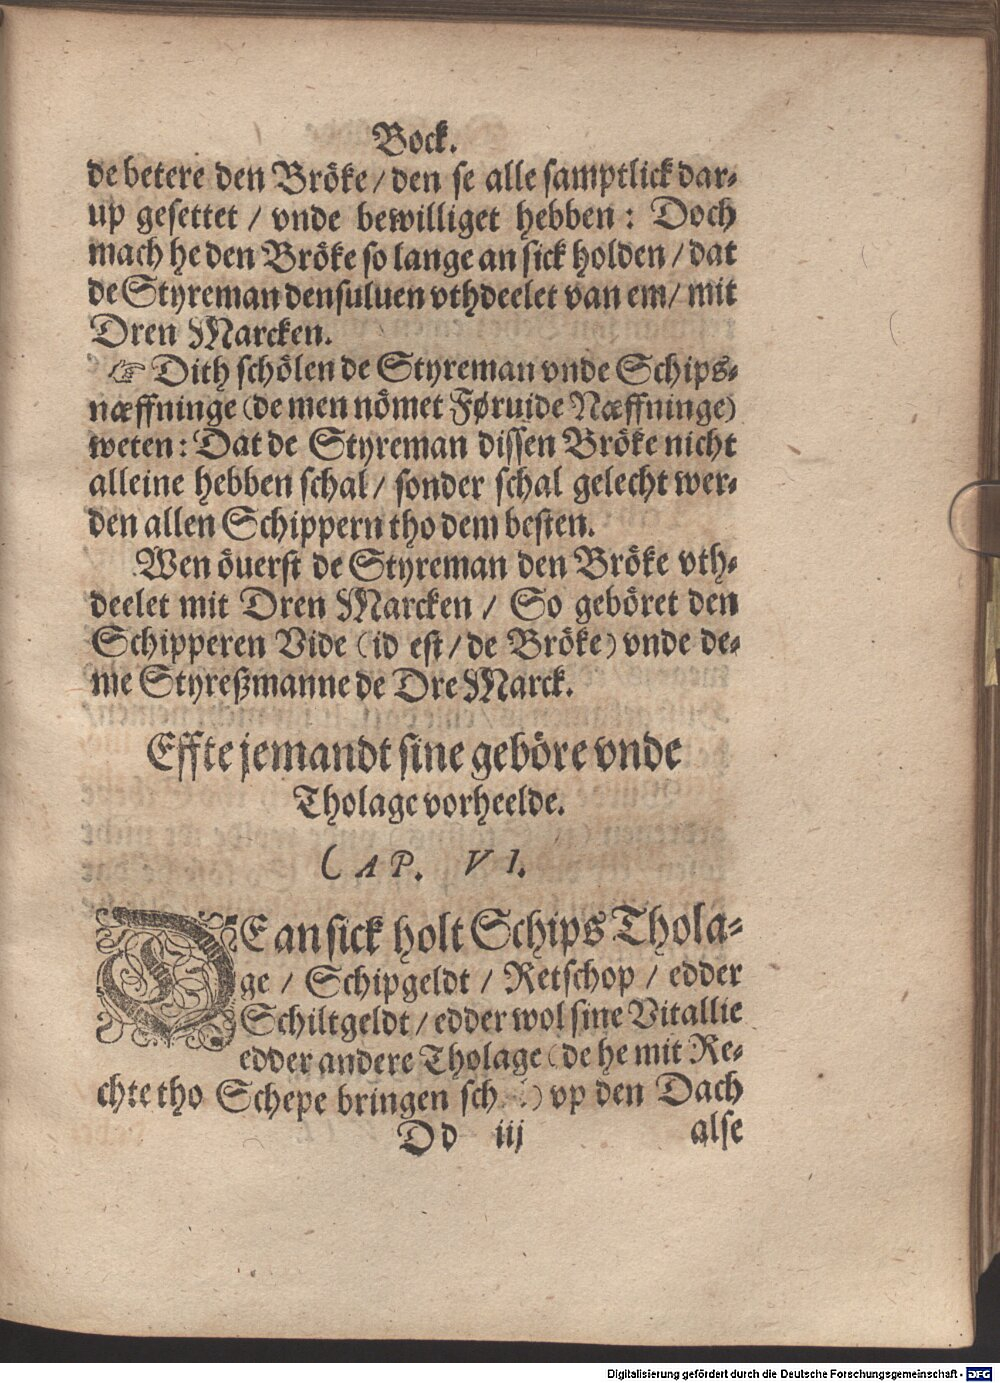 Bock.
de betere den Bröke / den se alle samptlick dar-
up gesettet / vnde bewilliget hebben : Doch
mach he den Bröke so lange an sick holden / dat
de Styreman densuluen vthdeelet van em / mit
Dren Marcken.
☞ Dith schölen de Styreman vnde Schips-
næffninge (de men nömet Føruide Næffninge)
weten : Dat de Styreman dissen Bröke nicht
alleine hebben schal / sonder schal gelecht wer-
den allen Schippern tho dem besten.
Wen öuerst de Styreman den Bröke vth-
deelet mit Dren Marcken / So geböret den
Schipperen Vide (id est / de Bröke) vnde de-
me Styreßmanne de Dre Marck.
Effte jemandt sine geböre vnde
Tholage vorheelde.
CAP. VI.
DE an sick holt Schips Thola-
ge / Schipgeldt / Retschop / edder
Schiltgeldt / edder wol sine Vitallie
edder andere Tholage (de he mit Re-
chte tho Schepe bringen ) vp den Dach
Dd iij alse
Digitalisierung gefördert durch die Deutsche Forschungsgemeinschaft - DFG